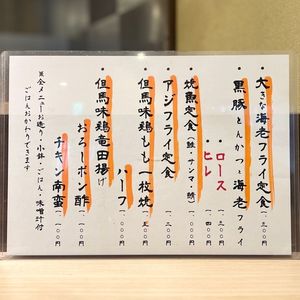 ・大きな海老フライ定食 一、三〇〇円
・黒豚とんかつと海老フライ
・ロース 一、三〇〇円
・ヒレ 一、四〇〇円
・焼魚定食(鮭・サンマ・鯖) 一、一〇〇円
・アジフライ定食 一、一〇〇円
・但馬味鶏もも一枚焼 一、五〇〇円
ハーフ 一、一〇〇円
・但馬味鶏竜田揚げ
おろしポン酢 一、一〇〇円
チキン南蛮 一、一〇〇円
※全メニューお造り・小鉢・ごはん・味噌汁付
ごはんおかわりできます